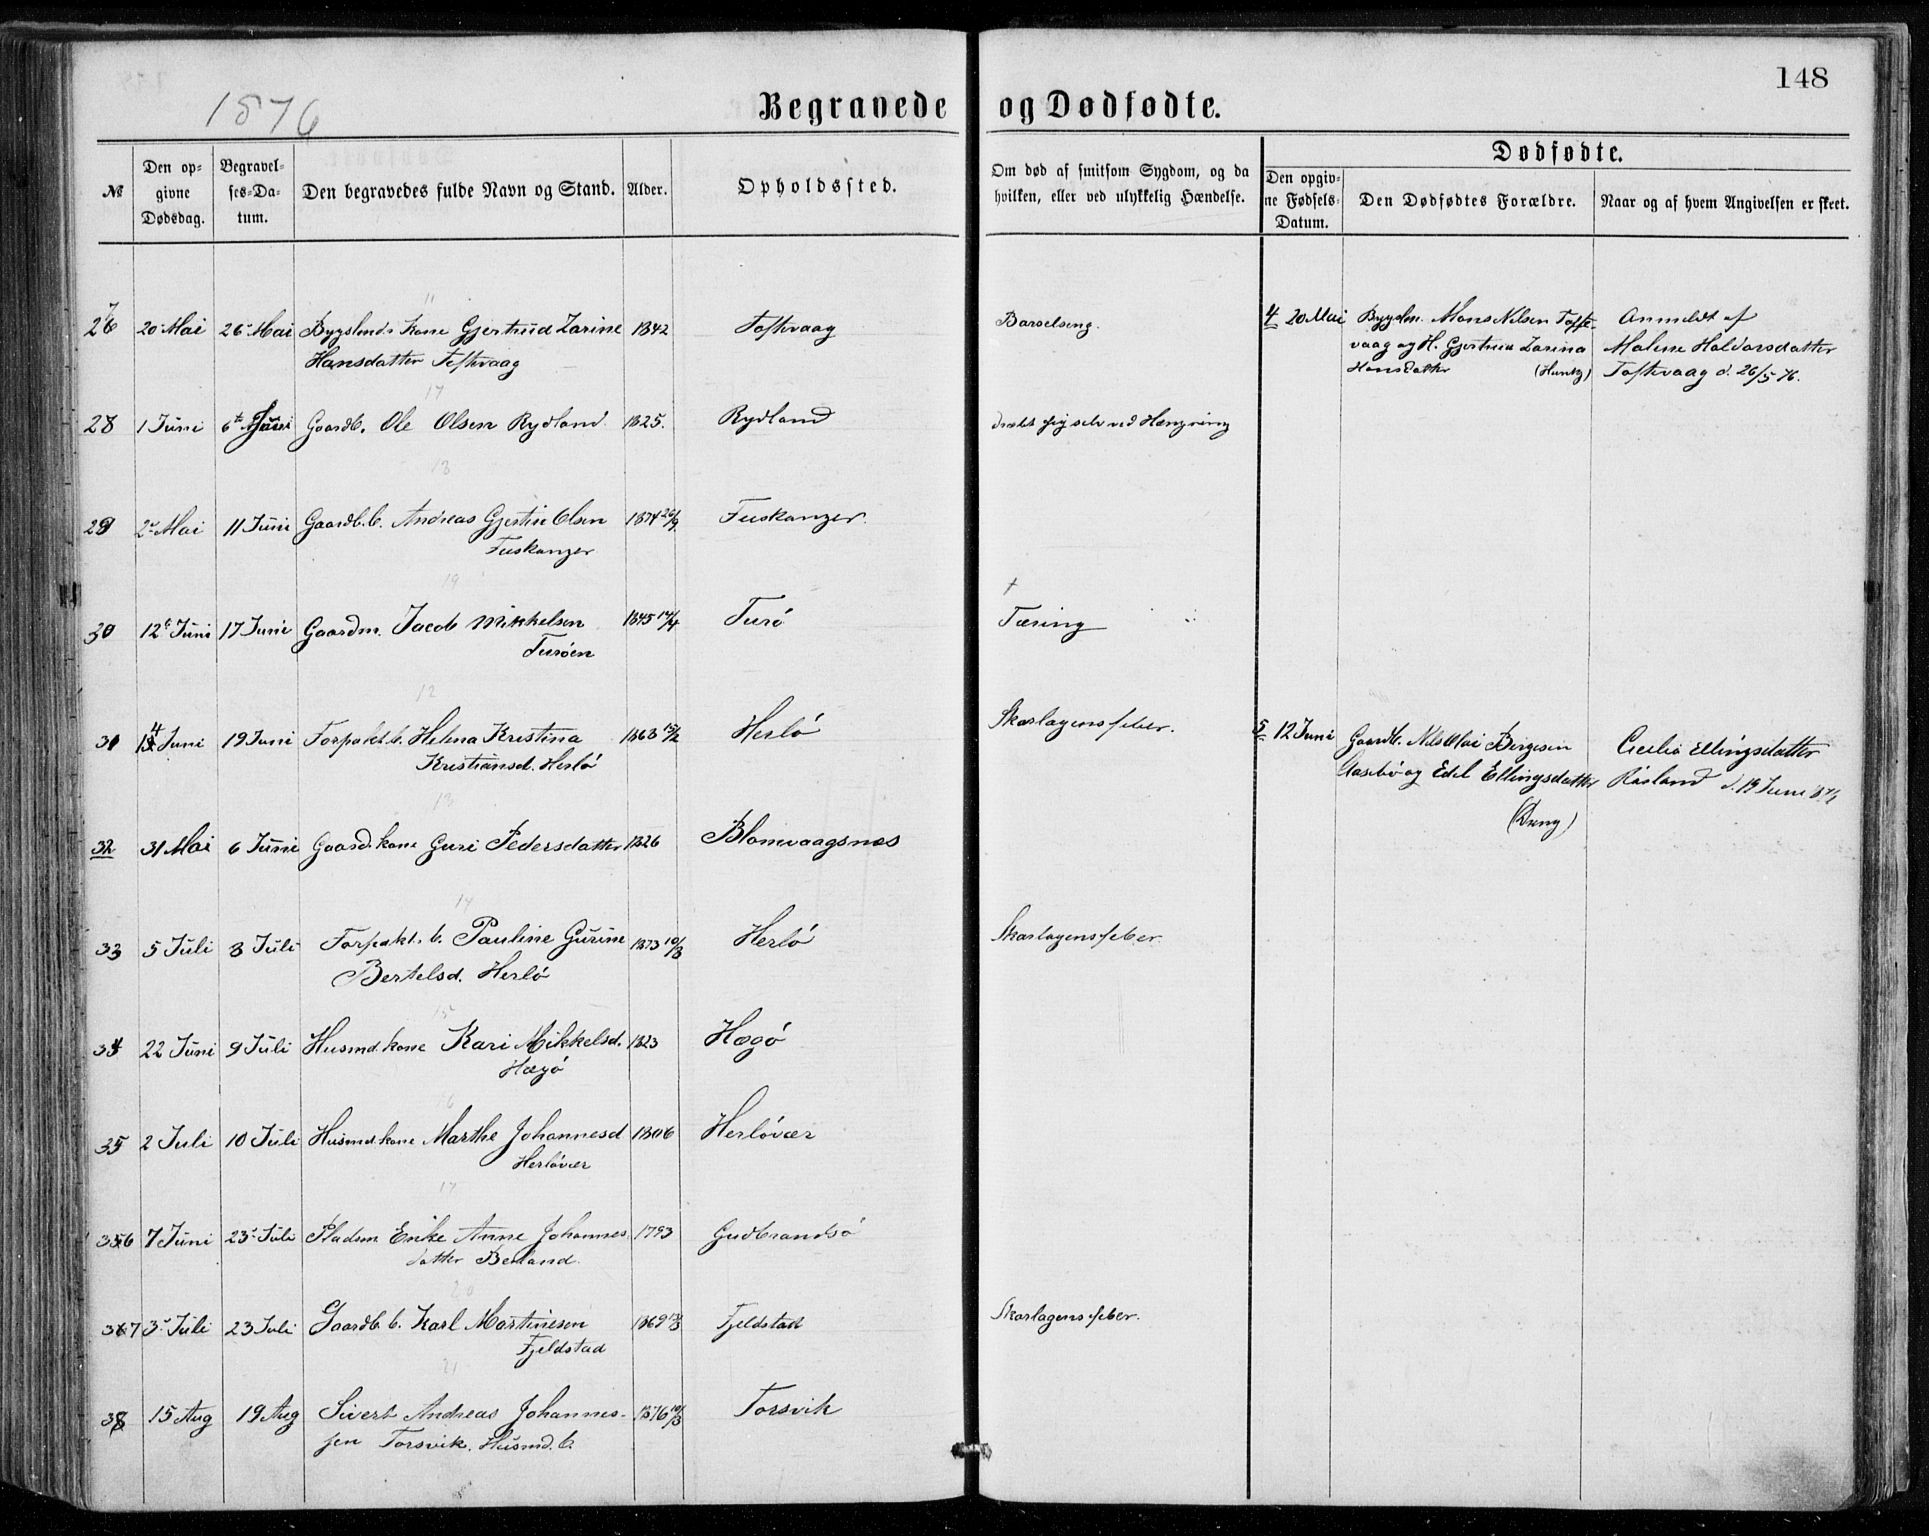 148
1876
Begravede og Dødfødte.
№
Den opgivne Dødsdag.
Begravelses-Datum.
Den begravedes fulde Navn og Stand.
Alder.
Opholdssted.
Om død af smitsom Sygdom, og da hvilken, eller ved ulykkelig Hændelse.
Dødfødte.
Den opgivne Fødsels-Datum.
Den Dødfødtes Forældre.
Naar og af hvem Angivelsen er skeet.
11
20 Mai 26 Mai Kone Gjertrud Zarine 1842 Toftevaag Barselseng. 4 20 Mai Bygslm. Mons Nilsen Tofte- Anmeldt af
Hansdatter Toftevaag vaag og H. Gjertrud Zarina Malene Haldorsdatter
Hansdatter Toftevaag d. 26/5 76.
17
28 1 Juni 6te Juni Gaardb. Ole Olsen Rydland 1825. Rydland dræbt sig selv ved Hængning
13
29 2 Mai 11 Juni Gaardb. b. Andreas Gjertin Olsen 1874 20/9 Fuskanger.
Fuskanger
19
30 12 Juni 17 Juni Gaardm. Jacob Mikkelsen 1845 Turö † Tæring
Turöen
12
31 14 Juni 19 Juni Forpakt. b. Helena Kristina 1868 15/2 Herlö Skarlagensfeber. 5 12 Juni Gaardb. Nils Olai Birgesen Cecilia Ellingsdatter
Kristiansd. Herlö og Edel Ellingsdatter Räsland d. 19 Juni
13
32 31 Mai 6 Juni Gaardkone Guri Pedersdatter 1826 Blomvaagsnæs
14
33 5 Juli 8 Juli Forpakt. b. Pauline Gurine 1873 10/8 Herlö Skarlagensfeber
Bertelsd. Herlö
15
34 22 Juni 9 Juli Husmd. kone Kari Mikkelsd. 1823 Hægö
Hægö
16
35 2 Juli 10 Juli Husmd. kone Marthe Johannesd 1806 Herlövær
Herlövær
17
36 7 Juni 23 Juli Pladsm Enke Anne Johannes 1793 Gudbrandsö
datter Berland.
20
37 3 Juli 23 Juli Gaardb. b. Karl Martinesen 1869 Fjeldstad Skarlagensfeber.
Fjeldstad
21
38 15 Aug 19 Aug Sivert Andreas Johannes- 1876 Torsvik
sen Torsvik. Husmd. b.